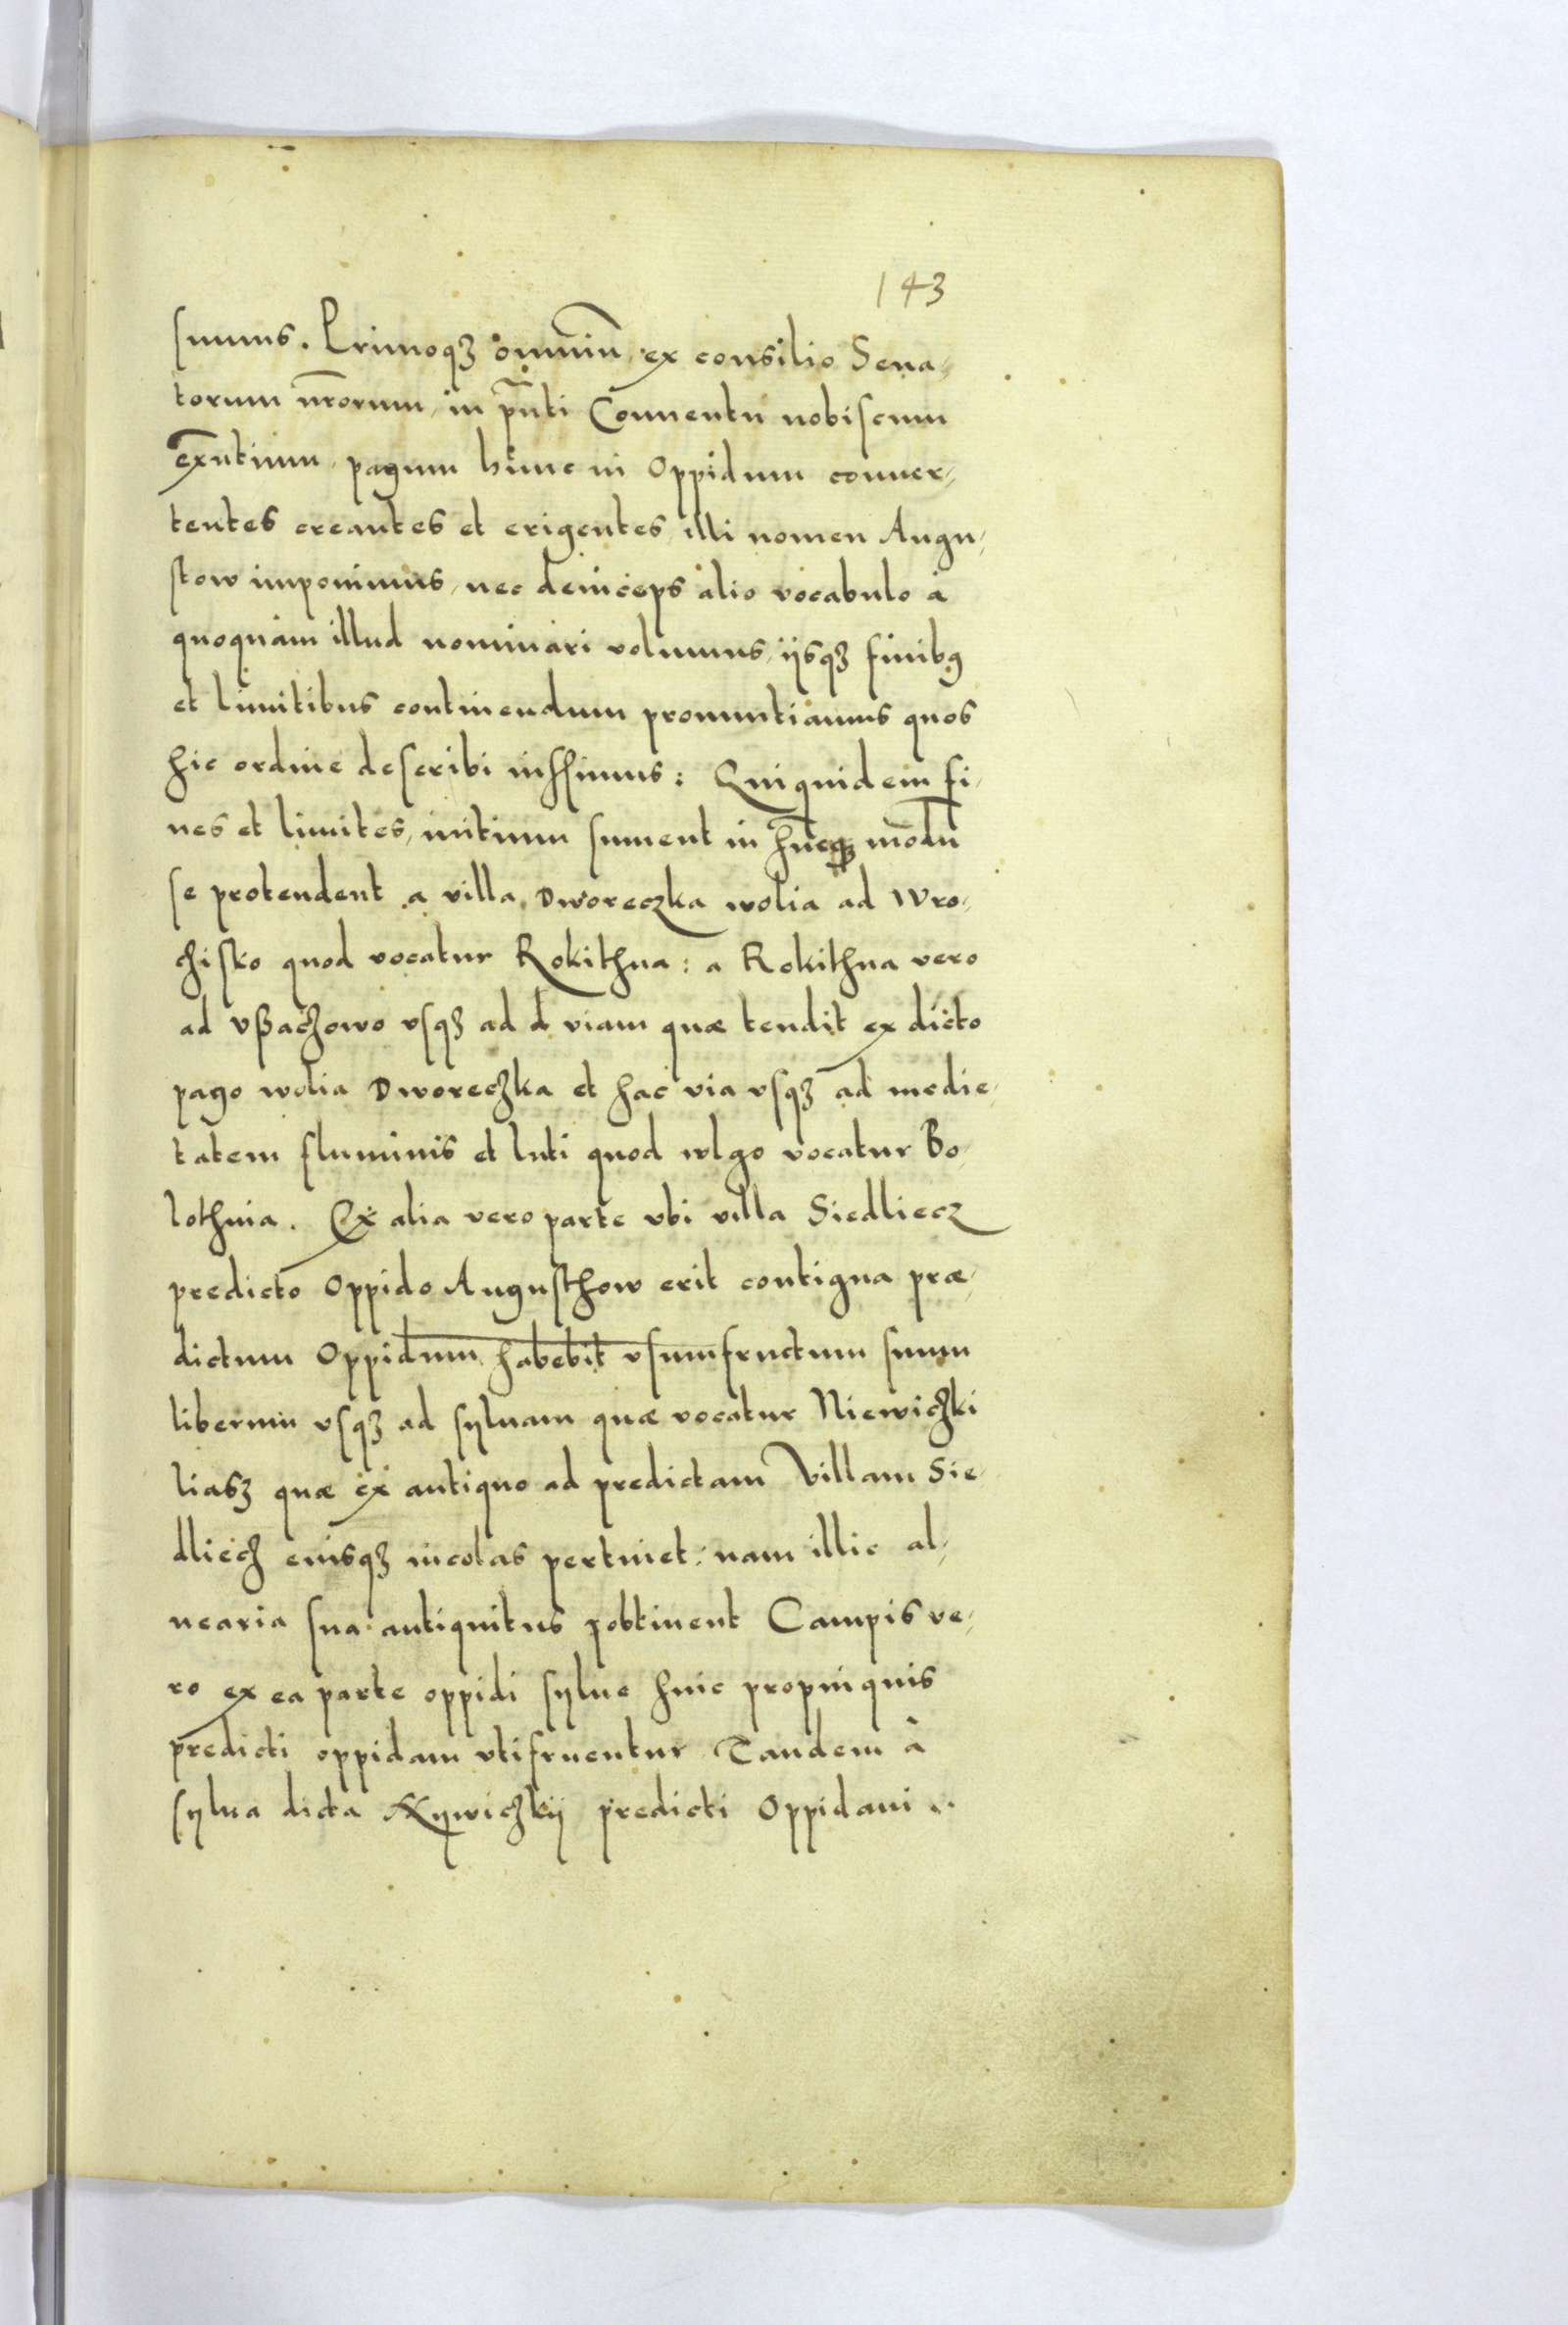 143
simus. Primoqȝ omniū ex consilio Sena-
torum nr̄orum, in pn̄ti Conuentu nobiscum
ex̄ntium, pagum hunc in Oppidum conuer-
tentes creantes et erigentes, illi nomen Augu-
stow imponimus, nec deinceps alio vocabulo á
quoquam illud nominari volumus, iisqȝ finibꝰ
et limitibus continendum pronuntiamus quos
hic ordine describi iussimus: Quiquidem fi-
nes et limites, initium sument in hūcqȝ modū
se protendent a villa Dworeczka wolia ad Wro-
chisko quod vocatur Rokithna: a Rokithna vero
ad vßachowo vsqȝ ad d viam quæ tendit ex dicto
pago wolia Dworeczka et hac via vsqȝ ad medie-
tatem fluminis et luti quod wlgo vocatur Bo-
lothnia. Ex alia vero parte vbi villa Siedliecz
predicto Oppido Augusthow erit contigua præ-
dictum Oppidum habebit vsumfructum suum
liberum vsqȝ ad syluam quæ vocatur Niewiczki
liasz quæ ex antiquo ad predictam Villam Sie-
dliecz eiusqȝ incolas pertinet: nam illic al-
uearia sua antiquitus obtinent Campis ve-
ro ex ea parte oppidi sylue huic propinquis
predicti oppidani vtifruentur Tandem à
sylua dicta Nywiczkij predicti Oppidani